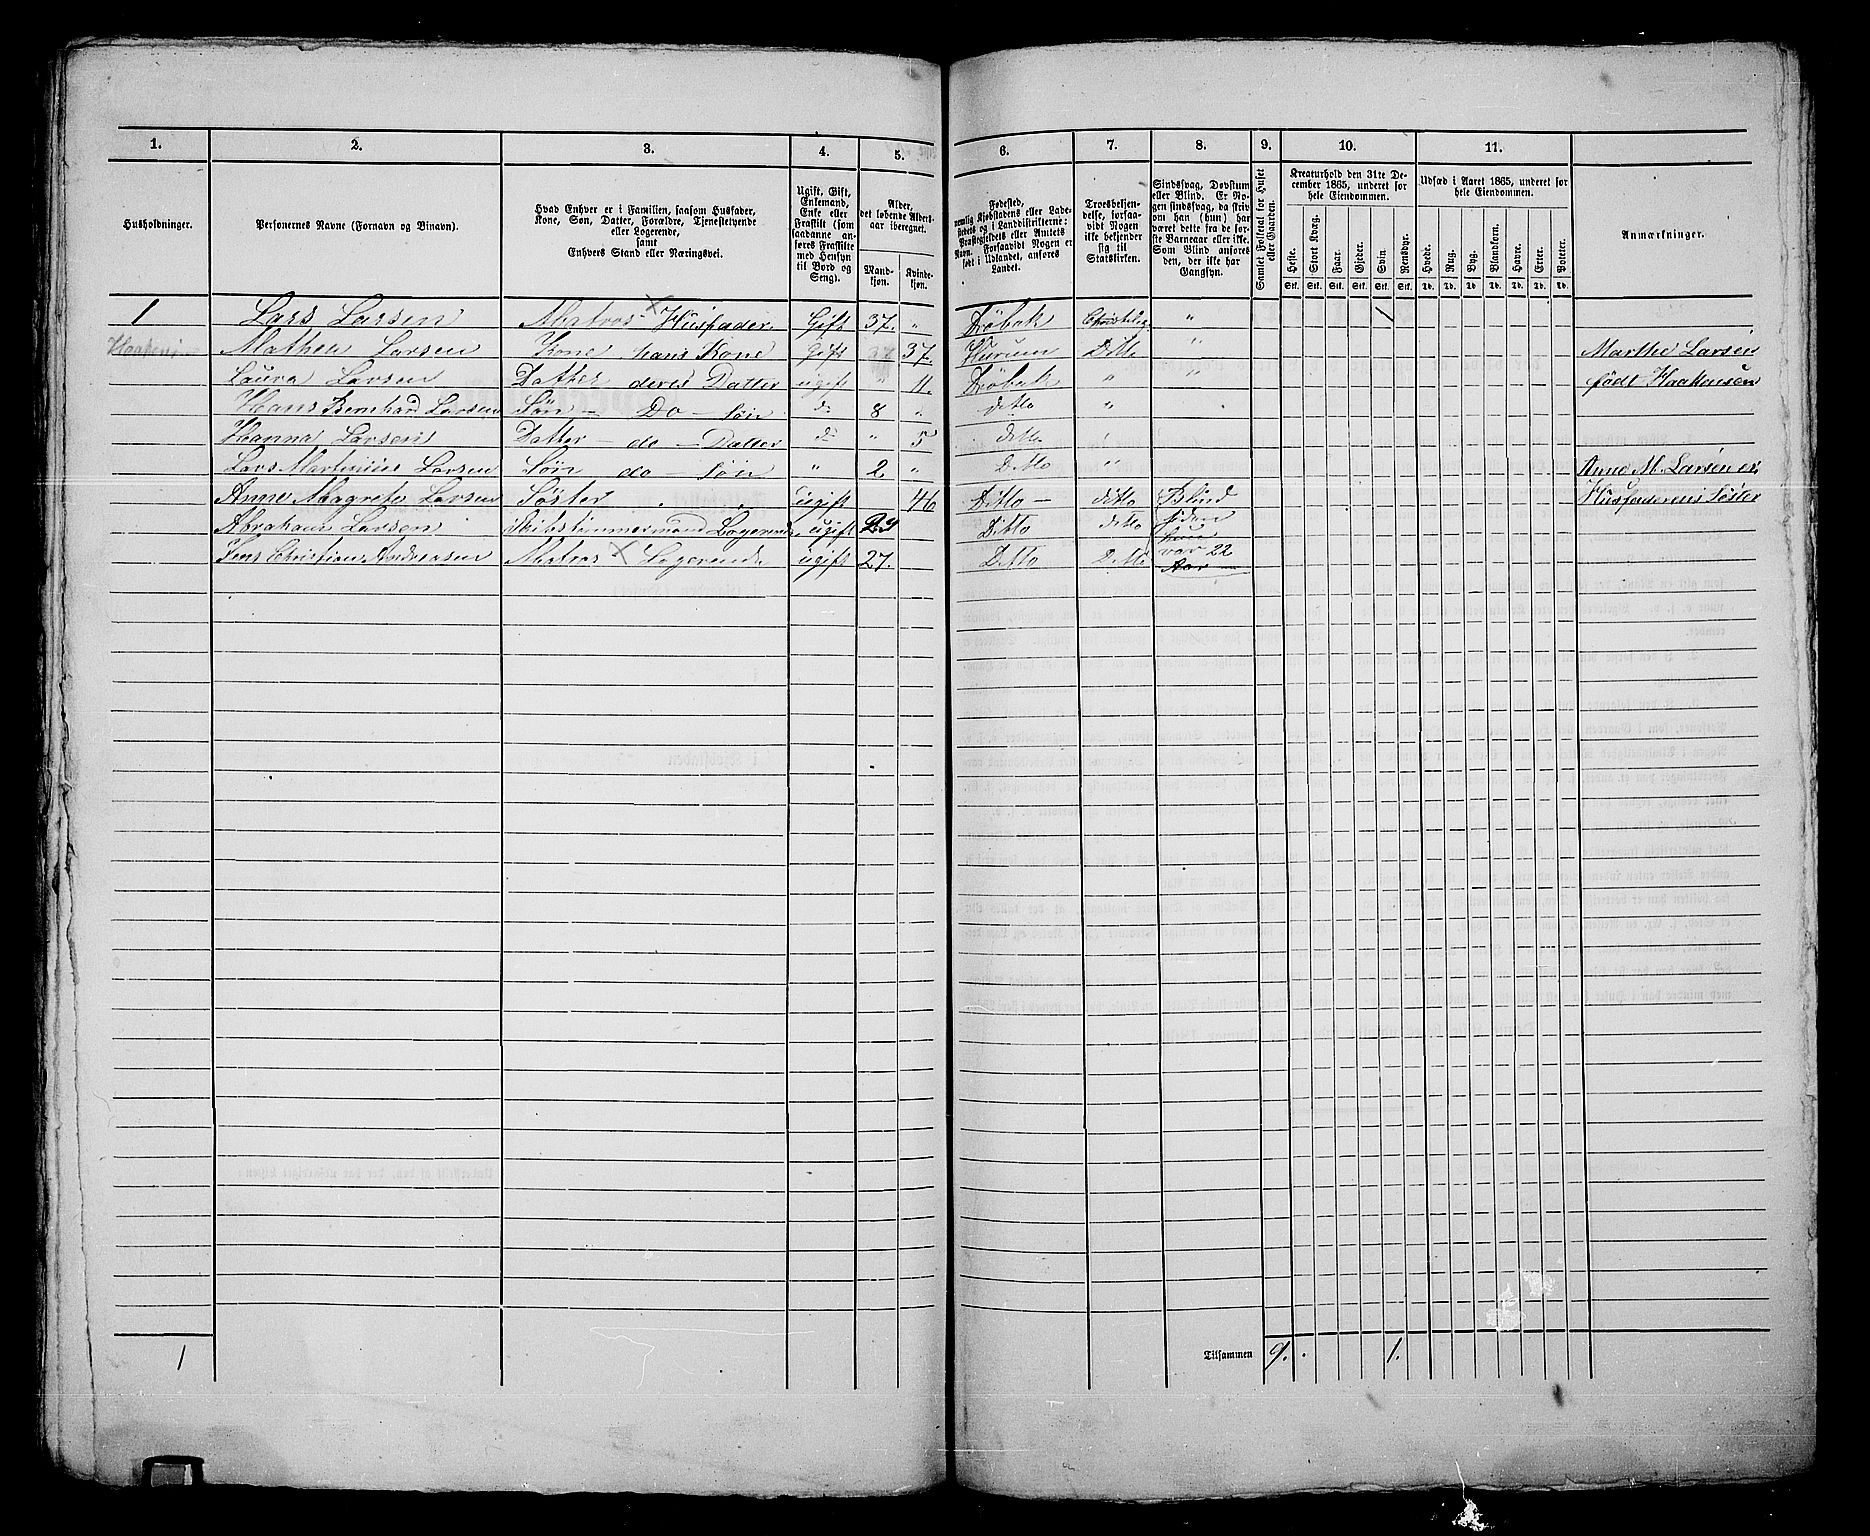 1. 2. 3. 4. 5. 6. 7. 8. 9. 10. 11.
Husholdninger.
Personernes Navne (Fornavn og Binavn).
Hvad Enhver er i Familien, saasom Husfader,
Kone, Søn, Datter, Forældre, Tjenestetyende
eller Logerende,
samt
Enhvers Stand eller Næringsvei.
Ugift, Gift,
Enkemand,
Enke eller
Fraskilt (som
saadanne an-
føres Fraskilte
med Hensyn
til Bord og
Seng).
Alder,
det løbende Alders-
aar iberegnet.
Mand-
kjøn.
Kvinde-
kjøn.
Fødested,
nemlig Kjøbstadens eller Lade-
stedets og i Landdistrikterne:
Præstegjeldets eller Amtets
Navn. Forsaavidt Nogen er
født i Udlandet, anføres
Landet.
Troesbekjen-
delse, forsaa-
vidt Nogen
ikke bekjender
sig til
Statskirken.
Sindssvag, Døvstum
eller Blind. Er No-
gen sindssvag, da hvis
om han (hun) har
været dette fra de før-
ste Barneaar eller ikke.
Som Blind anføres
den, der ikke har
Gangsyn.
Samlet Folketal for Huset
eller Gaarden.
Kreaturhold den 31te De-
cember 1865, underet for
hele Eiendommen.
Heste. Stort Kvæg. Faar. Gjeder. Svin Rensdyr.
Stk. Stk. Stk. Stk. Stk. Stk.
Udsæd i Aaret 1865, underet for
hele Eiendommen.
Hvede. Rug. Byg. Blandkorn. Havre. Erter. Poteter.
Td. Td. Td. Td. Td. Td. Td.
Anmærkninger.
1 Lars Larsen Matros × Husfader. Gift 37. " Drøbak Christelig " 1
Mathea Larsen Kone hans Kone Gift 37. Hurum Ditto " Marthe Larsen
Laura Larsen Datter deres Datter ugift " 11. Drøbak " " født Haakensen
Hans Bernhard Larsen Søn — Do — Søn d= 8 " ditto "
Hanna Larsen Datter — do — Datter d= " 5 ditto
Lars Martinius Larsen Søn do — Søn " 2 " Ditto " Anne M. Larsen er
Anne Magrete Larsen Søster ugift 46 Ditto — ditto Blind Husfaderens Søster
Abraham Larsen Skibstimmermand Logerende ugift Ditto ditto siden
hun
Jens Christian Andreasen Matros × Logerende ugift 27. Ditto Ditto var 22
Aar —
1 Tilsammen 9. 1.